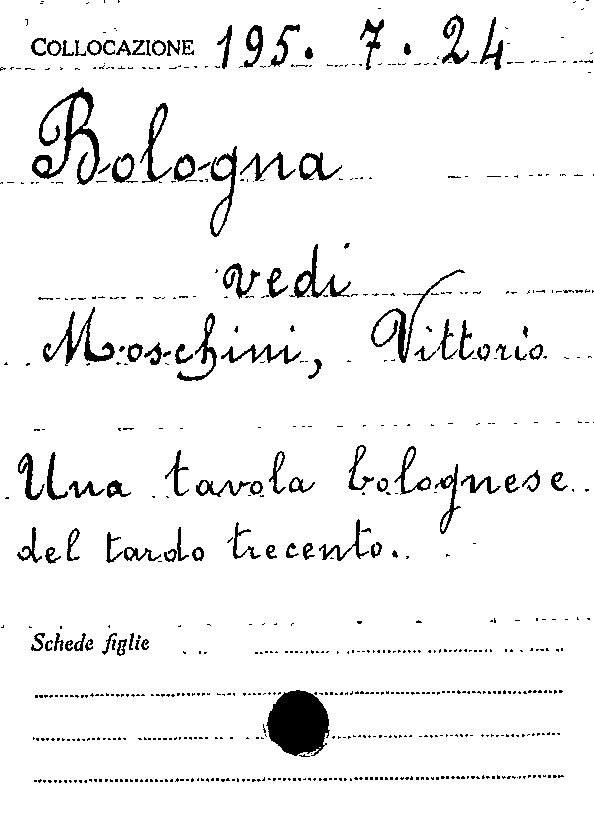 COLLOCAZIONE 195. 7. 24
Bologna
vedi
Moschini, Vittorio
Una tavola bolognese
del tardo trecento.
Schede figlie